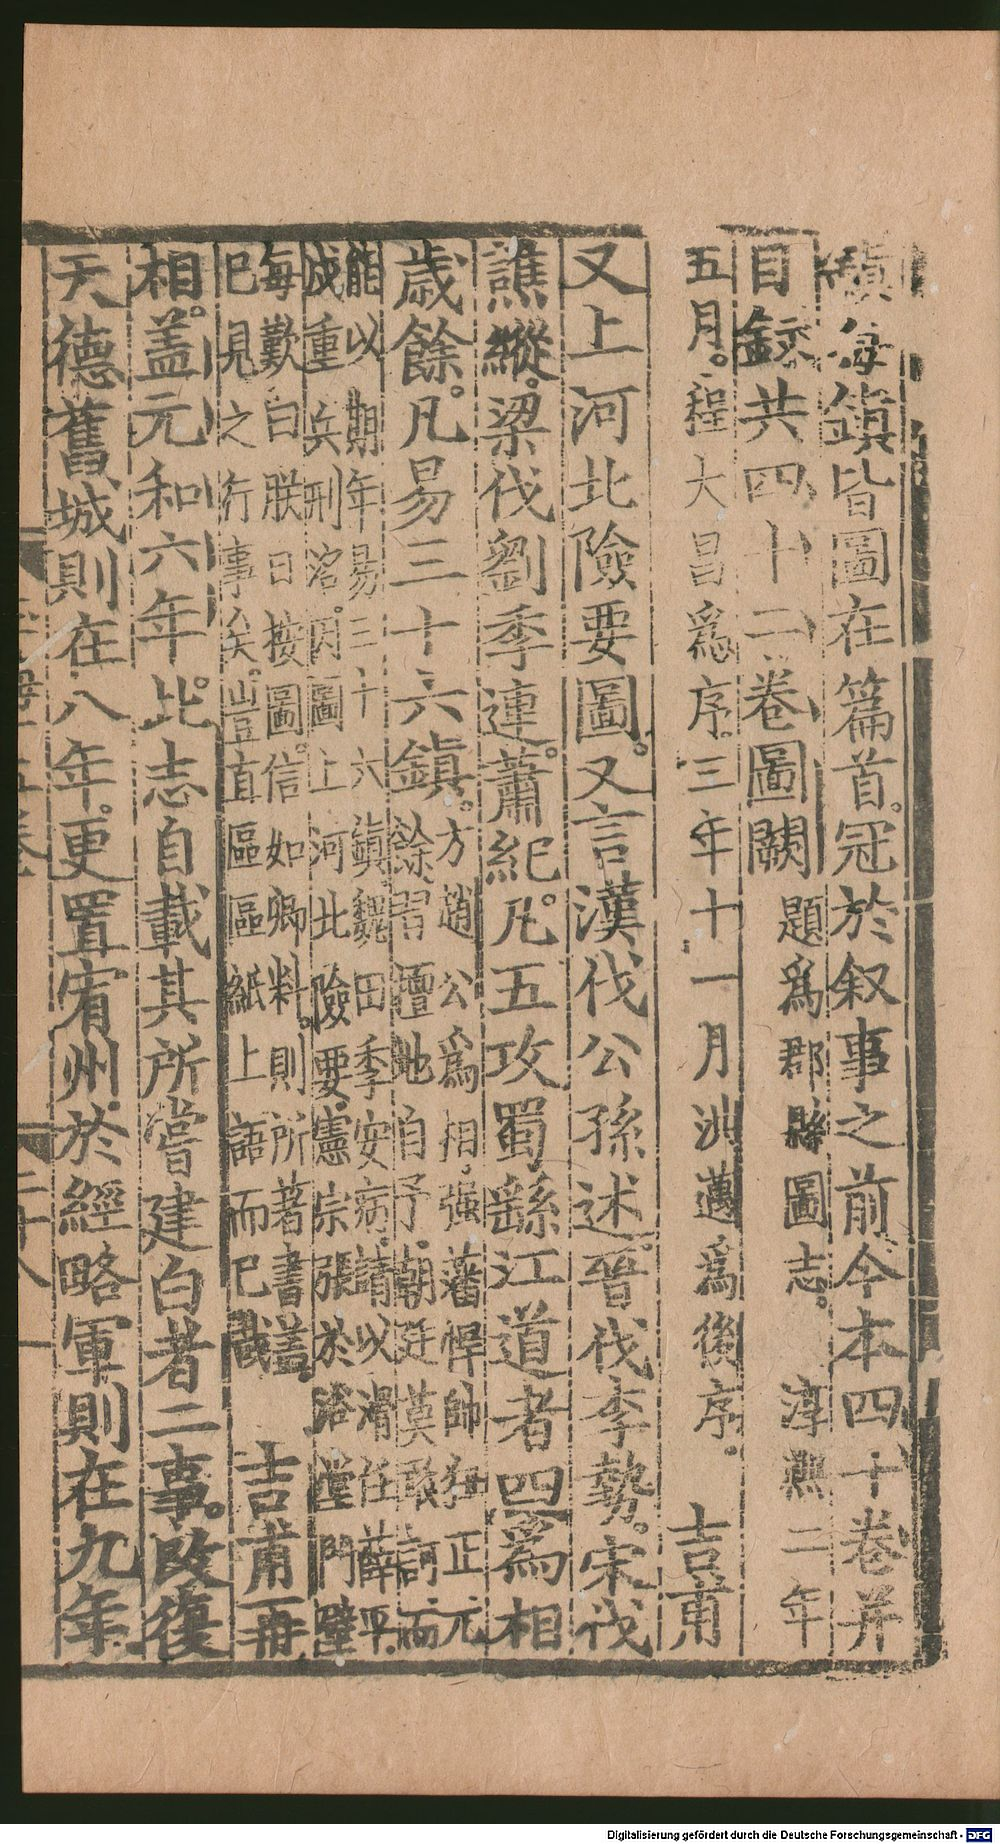 鎮每鎮皆圖在篇首。冠於叙事之前今本四十卷并
目録共四十二卷圖闕題爲郡縣圖志。淳熈二年
五月。程大昌爲序。三年十一月洪邁爲後序。吉甫
又上河北險要圖。又言漢伐公孫述。晉伐李勢。宋伐
譙縱。梁伐劉季連。蕭紀。凡五攻蜀繇江道者四爲相
歲餘。凡易三十六鎮。方趙公爲相。强藩悍帥狃正元
餘習擅地自予。朝廷莫敢訶而
能以期年易三十六鎮。魏田季安病。請以滑任薛平。
成重兵刑洺。因圖上河北險要。憲宗張於浴堂門壁
每歎曰朕日按圖。信如卿料。則所著書。蓋
已見之行事矣。豈直區區紙上語而已哉吉甫再
相。盖元和六年。此志自載其所嘗建白者二事。改復
天德舊城則在八年。更置宥州於經略軍則在九年
Digitalisierung gefördert durch die Deutsche Forschungsgemeinschaft - DFG